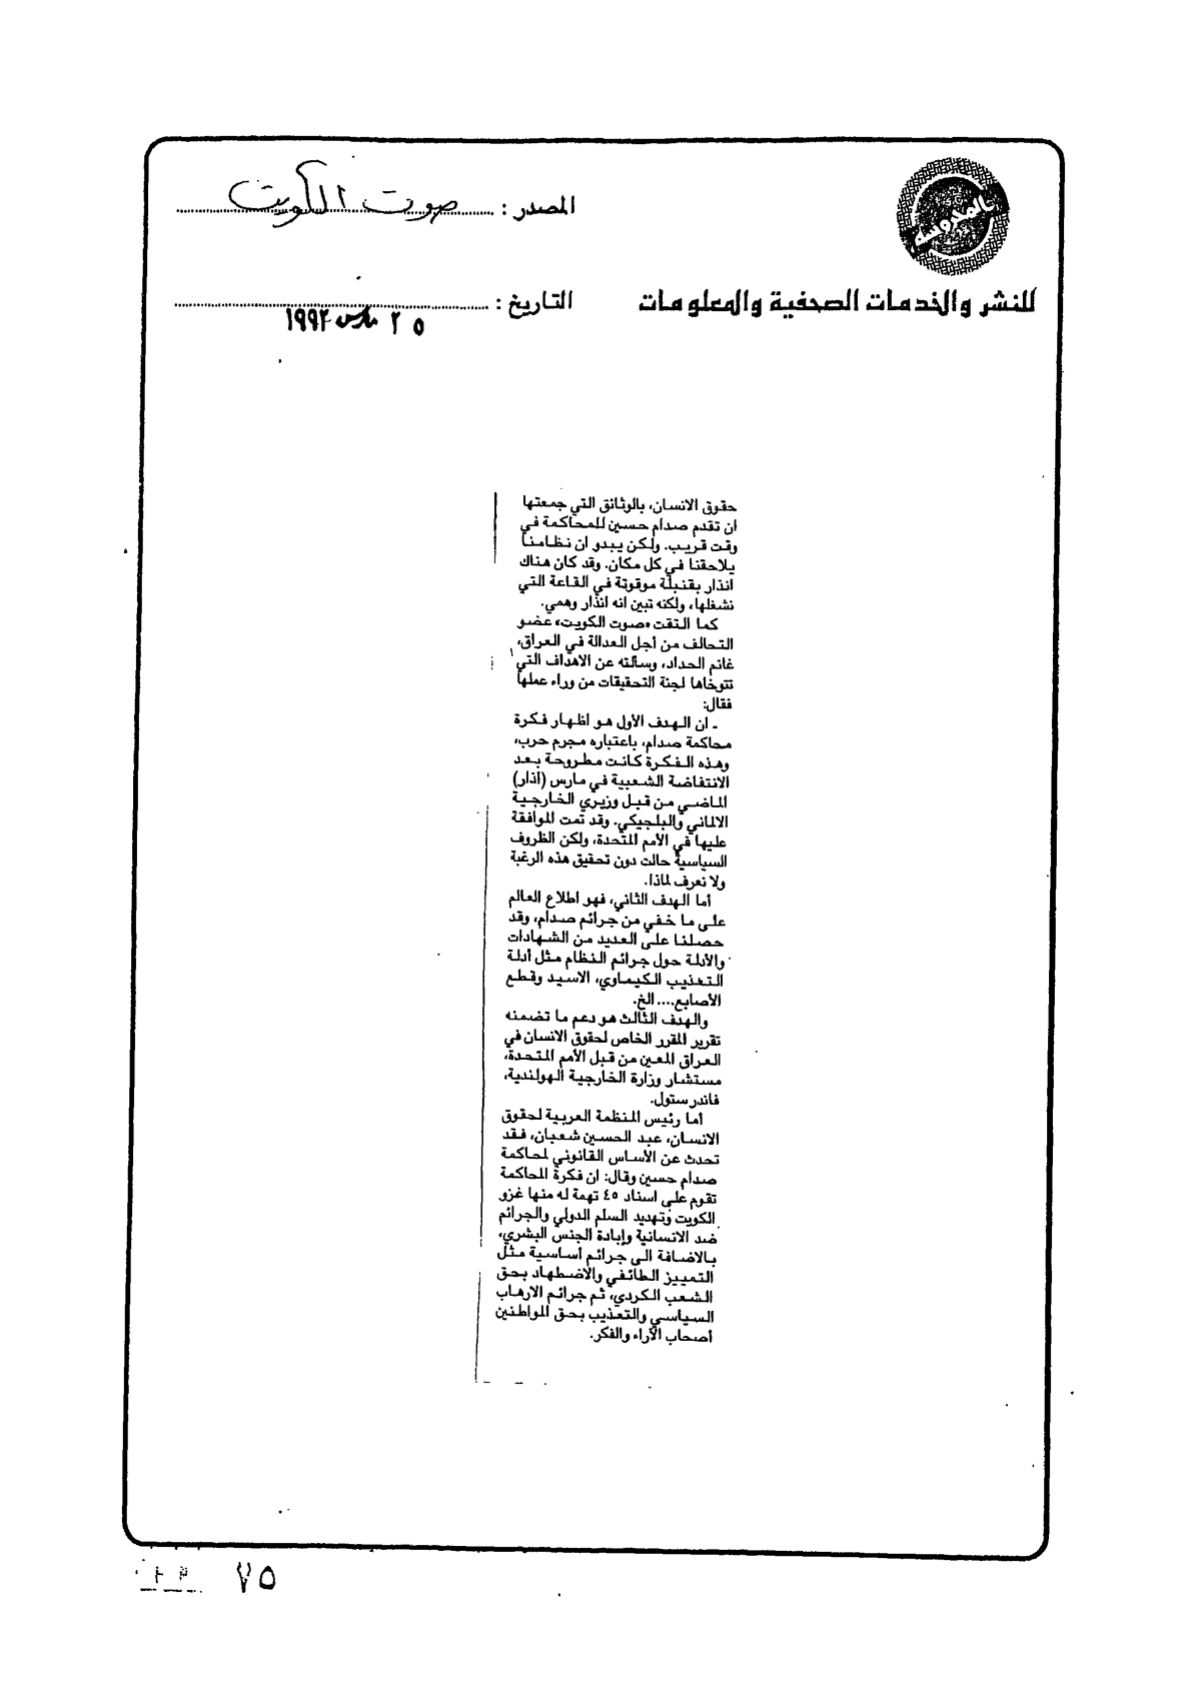 المصدر : صوت الكويت
للنشر والخدمات الصحفية والمعلومات
التاريخ : ٢٥ مارس ١٩٩٢
حقوق الانسان، بالوثائق التي جمعتها
ان تقدم صدام حسين للمحاكمة في
وقت قريب. ولكن يبدو ان نظامنا
يلاحقنا في كل مكان. وقد كان هناك
انذار بقنبلة موقوتة في القاعة التي
نشغلها، ولكنه تبين انه انذار وهمي.
كما التقت «صوت الكويت» عضو
التحالف من أجل العدالة في العراق،
غانم الحداد، وسألته عن الاهداف التي
تتوخاها لجنة التحقيقات من وراء عملها
فقال:
ـ ان الهدف الأول هو اظهار فكرة
محاكمة صدام، باعتباره مجرم حرب،
وهذه الفكرة كانت مطروحة بعد
الانتفاضة الشعبية في مارس (آذار)
الماضي من قبل وزيري الخارجية
الالماني والبلجيكي. وقد تمت الموافقة
عليها في الأمم المتحدة، ولكن الظروف
السياسية حالت دون تحقيق هذه الرغبة
ولا نعرف لماذا.
أما الهدف الثاني، فهو اطلاع العالم
على ما خفي من جرائم صدام، وقد
حصلنا على العديد من الشهادات
والأدلة حول جرائم النظام مثل أدلة
التعذيب الكيماوي، الاسيد وقطع
الأصابع.... الخ.
والهدف الثالث هو دعم ما تضمنه
تقرير المقرر الخاص لحقوق الانسان في
العراق المعين من قبل الأمم المتحدة،
مستشار وزارة الخارجية الهولندية،
فاندر ستول.
أما رئيس المنظمة العربية لحقوق
الانسان، عبد الحسين شعبان، فقد
تحدث عن الأساس القانوني لمحاكمة
صدام حسين وقال: ان فكرة المحاكمة
تقوم على اسناد ٤٥ تهمة له منها غزو
الكويت وتهديد السلم الدولي والجرائم
ضد الانسانية وإبادة الجنس البشري،
بالاضافة الى جرائم أساسية مثل
التمييز الطائفي والاضطهاد بحق
الشعب الكردي، ثم جرائم الارهاب
السياسي والتعذيب بحق المواطنين
أصحاب الآراء والفكر.
٧٥